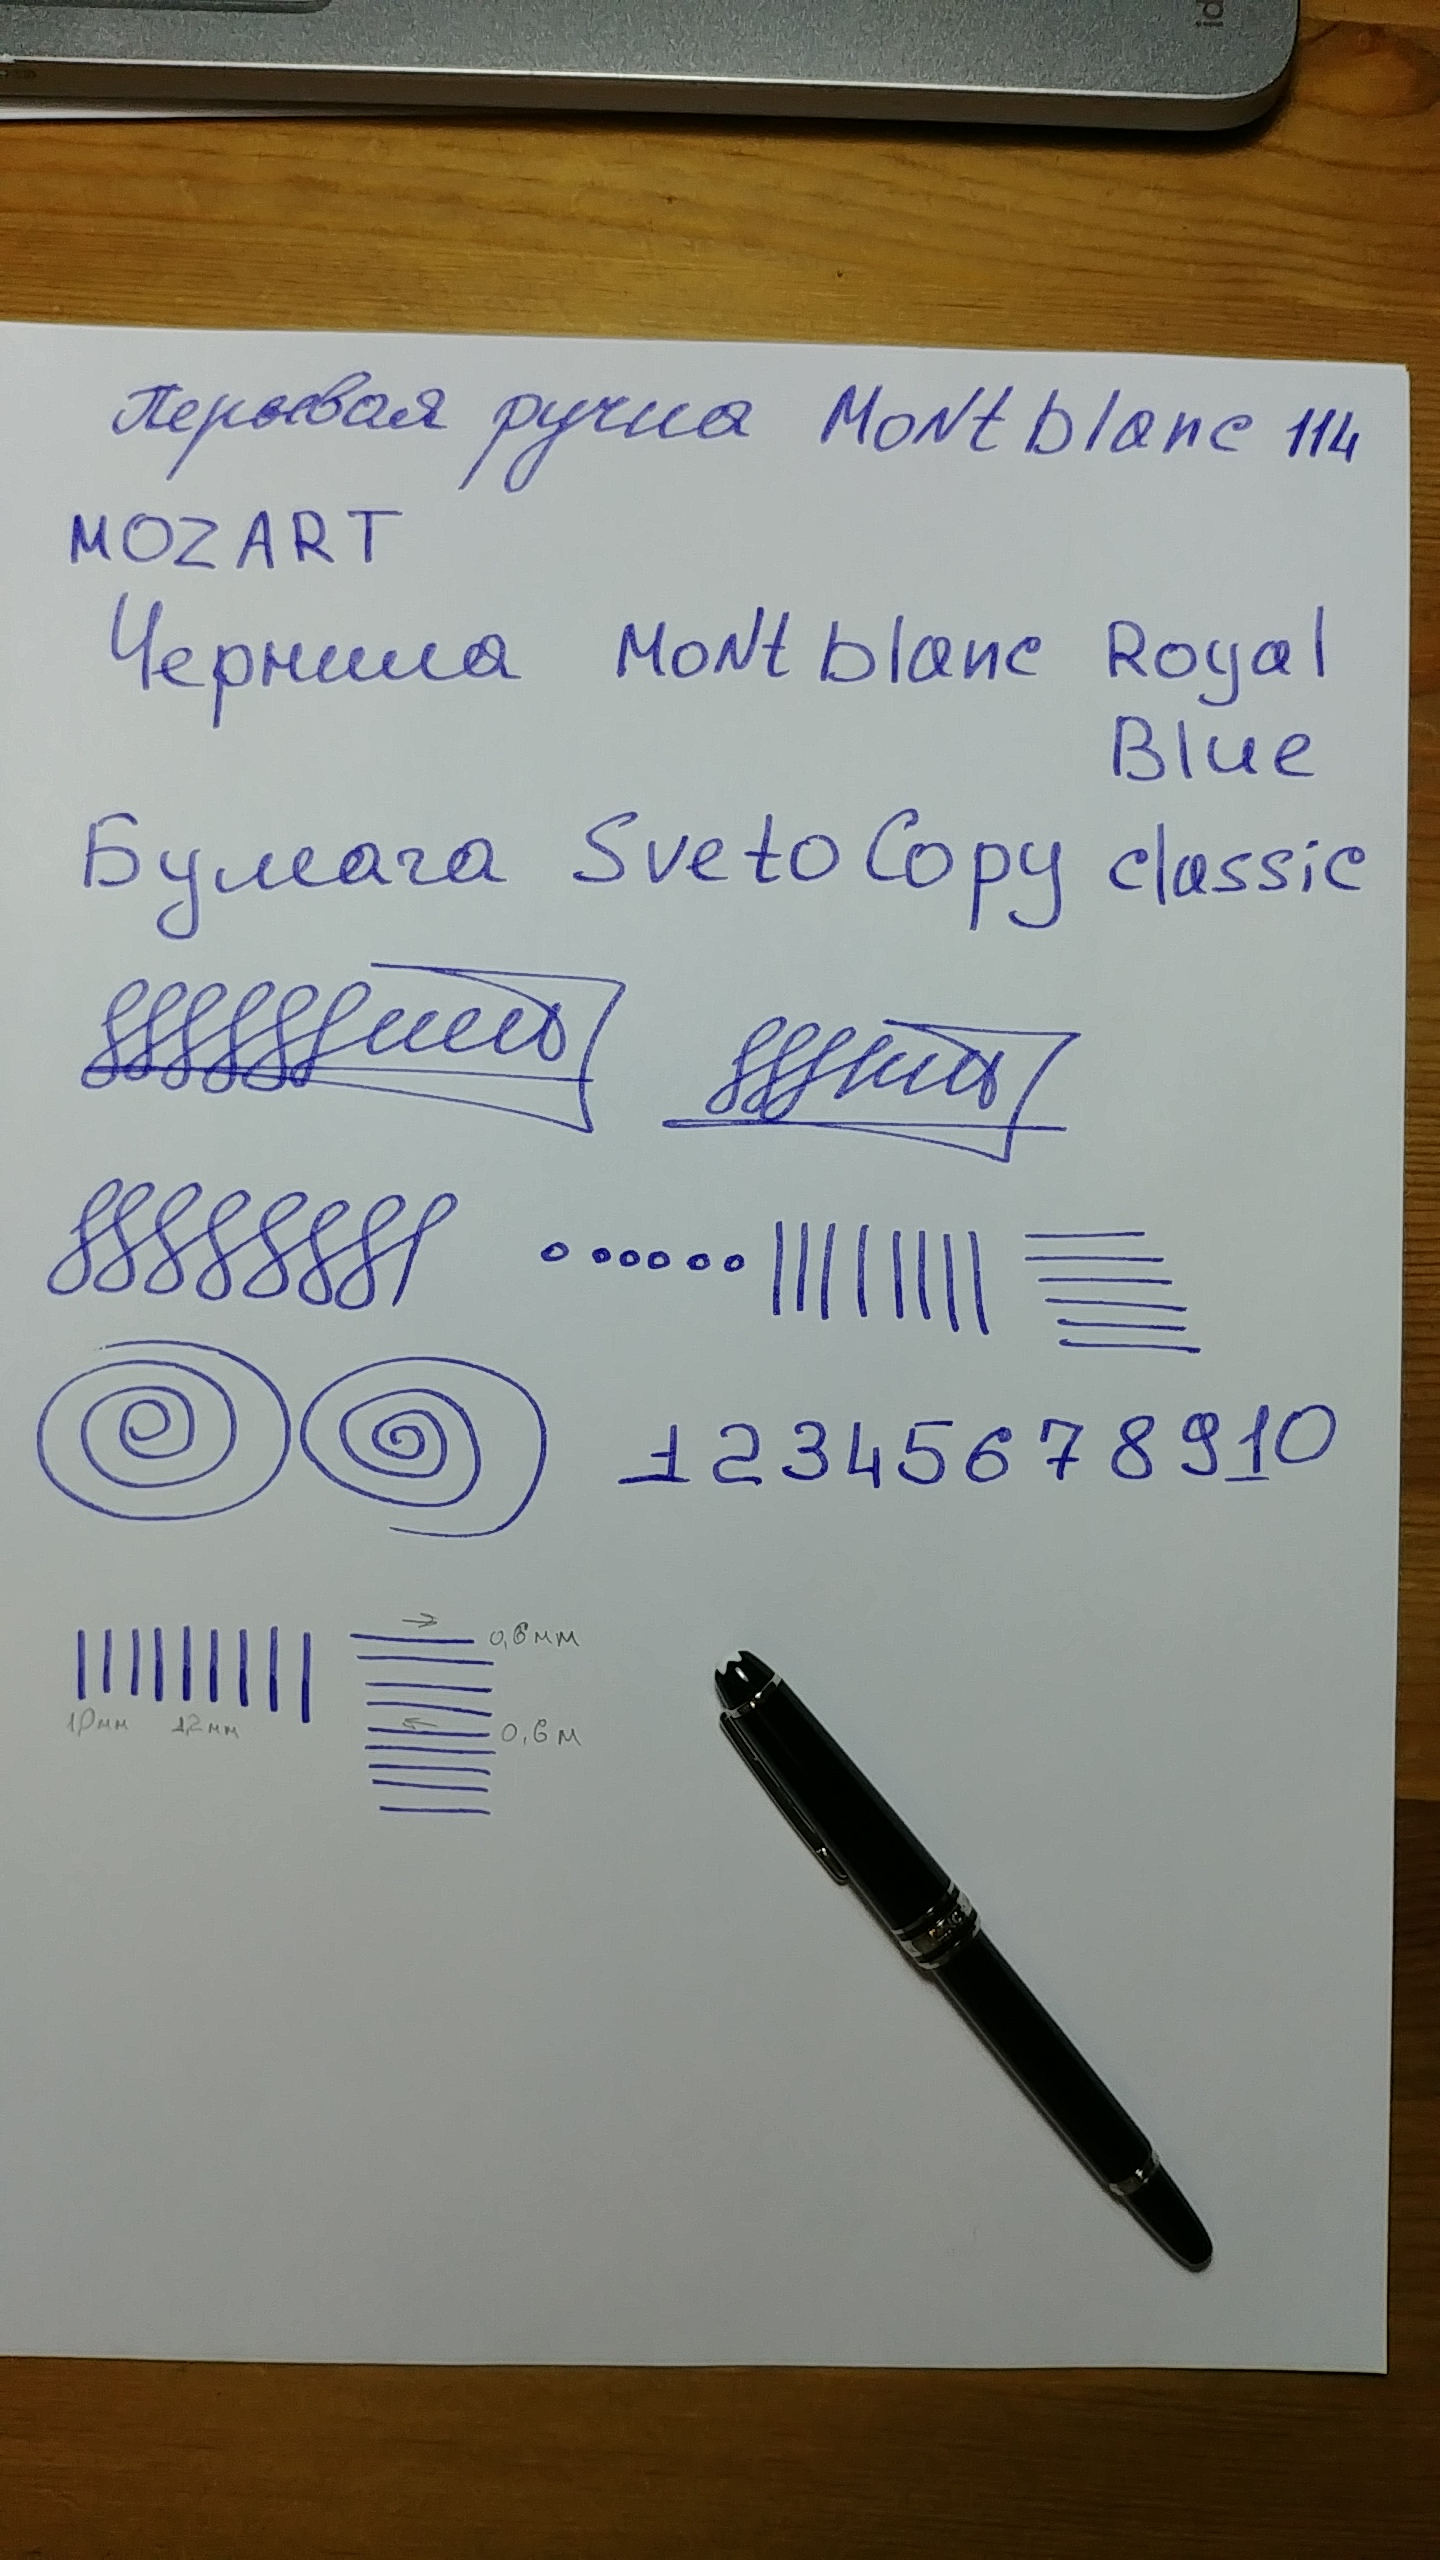 Перьевая ручка Montblanc 114
MOZART
Чернила Montblanc Royal
Blue
Бумага SvetoCopy classic
1 2 3 4 5 6 7 8 9 10
0,6мм
1,0мм 1,2мм
0,6м
id